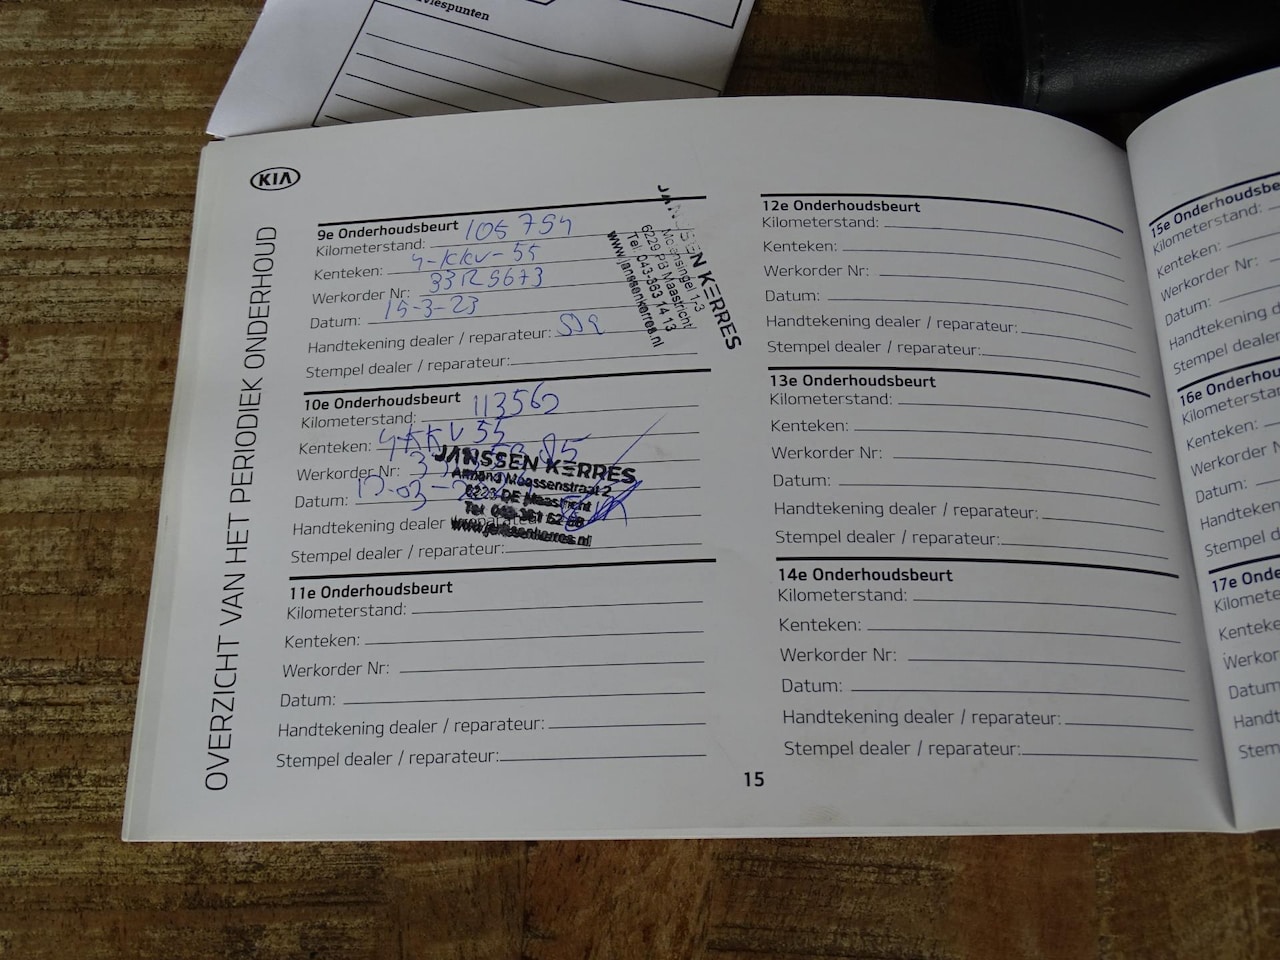 viespunten
KIA
OVERZICHT VAN HET PERIODIEK ONDERHOUD
9e Onderhoudsbeurt
Kilometerstand: 105794
Kenteken: 4-KKV-55
Werkorder Nr: 33125673
Datum: 15-3-23
Handtekening dealer / reparateur:
Stempel dealer / reparateur:
JANSSEN KERRES
Moesingel 1-3
6229 PB Maastricht
Tel. 043-363 14 13
www.janssenkerres.nl
10e Onderhoudsbeurt
Kilometerstand: 113562
Kenteken: 4-KKV 55
Werkorder Nr:
Datum:
Handtekening dealer / reparateur
Stempel dealer / reparateur:
JANSSEN KERRES
Moessenstraat 2
6223 DE Maastricht
Tel 043-361 62
www.janssenkerres.nl
11e Onderhoudsbeurt
Kilometerstand:
Kenteken:
Werkorder Nr:
Datum:
Handtekening dealer / reparateur:
Stempel dealer / reparateur:
12e Onderhoudsbeurt
Kilometerstand:
Kenteken:
Werkorder Nr:
Datum:
Handtekening dealer / reparateur:
Stempel dealer / reparateur:
13e Onderhoudsbeurt
Kilometerstand:
Kenteken:
Werkorder Nr:
Datum:
Handtekening dealer / reparateur:
Stempel dealer / reparateur:
14e Onderhoudsbeurt
Kilometerstand:
Kenteken:
Werkorder Nr:
Datum:
Handtekening dealer / reparateur:
Stempel dealer / reparateur:
15
15e Onderhoudsbe
Kilometerstand:
Kenteken:
Werkorder Nr:
Datum:
Handtekening d
Stempel dealer
16e Onderhou
Kilometerstan
Kenteken:
Werkorder N
Datum:
Handteken
Stempel d
17e Onde
Kilomete
Kenteke
Werkor
Datum
Handt
Stem